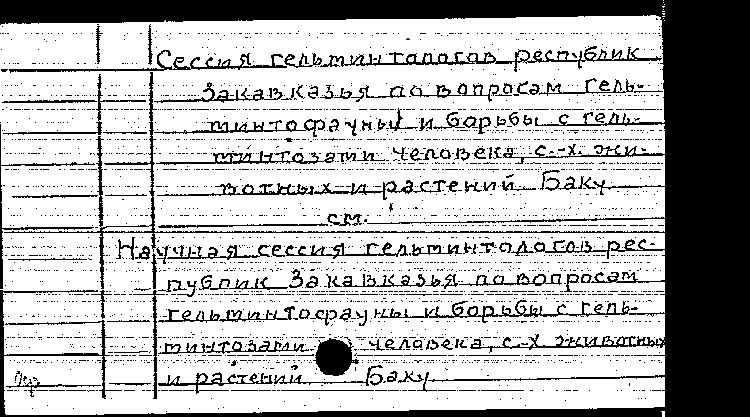 Сессия гельминтологов республик
Закавказья по вопросам гель-
минтофауны и борьбы с гель-
минтозами человека, с.-х. жи-
вотных и растений Баку
см.
Научная сессия гельминтологов рес-
публик Закавказья по вопросам
гельминтофауны и борьбы с гель-
минтозами человека, с.-х животных
и растений Баку